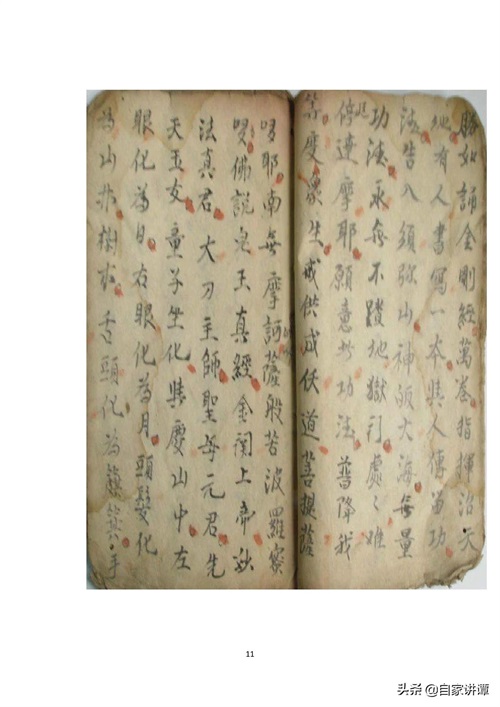 勝如誦金剛經萬卷指揮治天
地有人書寫一本与人傳留功
法告入須弥山神皈大海每量
功法永每不踐地獄行處々难
俉达摩耶願意於功法普降我
等度众生戒供成伏道菩提薩
哆耶南無摩訶薩般若波羅蜜
哆佛說皇王真經金闕上帝妙
法真君大刀主師聖母元君先
天玉女童子坐化与度山中左
眼化為日右眼化為月頭髮化
為山林樹木舌頭化為手
11
头条 @自家讲谭